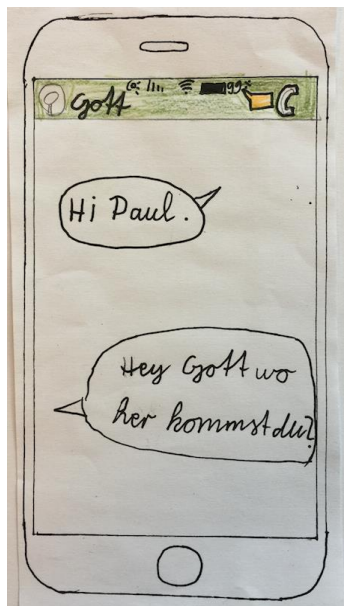 Gott 99%
Hi Paul.
Hey Gott wo
her kommst du?